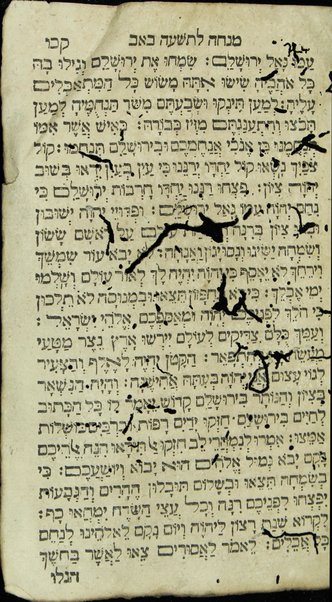 מנחה לתשעה באב קכו
עמו גאל ירושלם: שמחו את ירושלם וגילו בה
כל אהביה שישו אתה משוש כל המתאבלים
עליה: למען תינקו ושבעתם משד תנחמיה למען
תמצו והתענגתם מזיז כבודה: כאיש אשר אמו
תנחמנו כן אנכי אנחמכם ובירושלם תנחמו: קול
צפיך נשאו קול יחדו ירננו כי עין בעין יראו בשוב
יהוה ציון: פצחו רננו יחדו חרבות ירושלם כי
נחם יהוה עמו גאל ירושלם: ופדויי יהוה ישובון
ציון ברנה על ראשם ששון
ושמחה ישיגון ונסו יגון ואנחה: לא יבוא עוד שמשך
וירחך לא יאסף כי יהוה יהיה לך לאור עולם ושלמו
ימי אבלך: כי לא בחפזון תצאו ובמנוסה לא תלכון
כי הלך לפניכם יהוה ומאספכם אלהי ישראל:
ועמך כלם צדיקים לעולם יירשו ארץ נצר מטעי
מעשה להתפאר: הקטן יהיה לאלף והצעיר
לגוי עצום אני יהוה בעתה אחישנה: והיה הנשאר
בציון והנותר בירושלם קדוש יאמר לו כל הכתוב
לחיים בירושלם: חזקו ידים רפות וברכים כושלות
אמצו: אמרו לנמהרי לב חזקו אל תיראו הנה אלהיכם
נקם יבוא גמול אלהים הוא יבוא ויושעכם: כי
בשמחה תצאו ובשלום תובלון ההרים והגבעות
יפצחו לפניכם רנה וכל עצי השדה ימחאו כף:
לקרוא שנת רצון ליהוה ויום נקם לאלהינו לנחם
כל אבלים: לאמר לאסורים צאו לאשר בחשך
הגלו